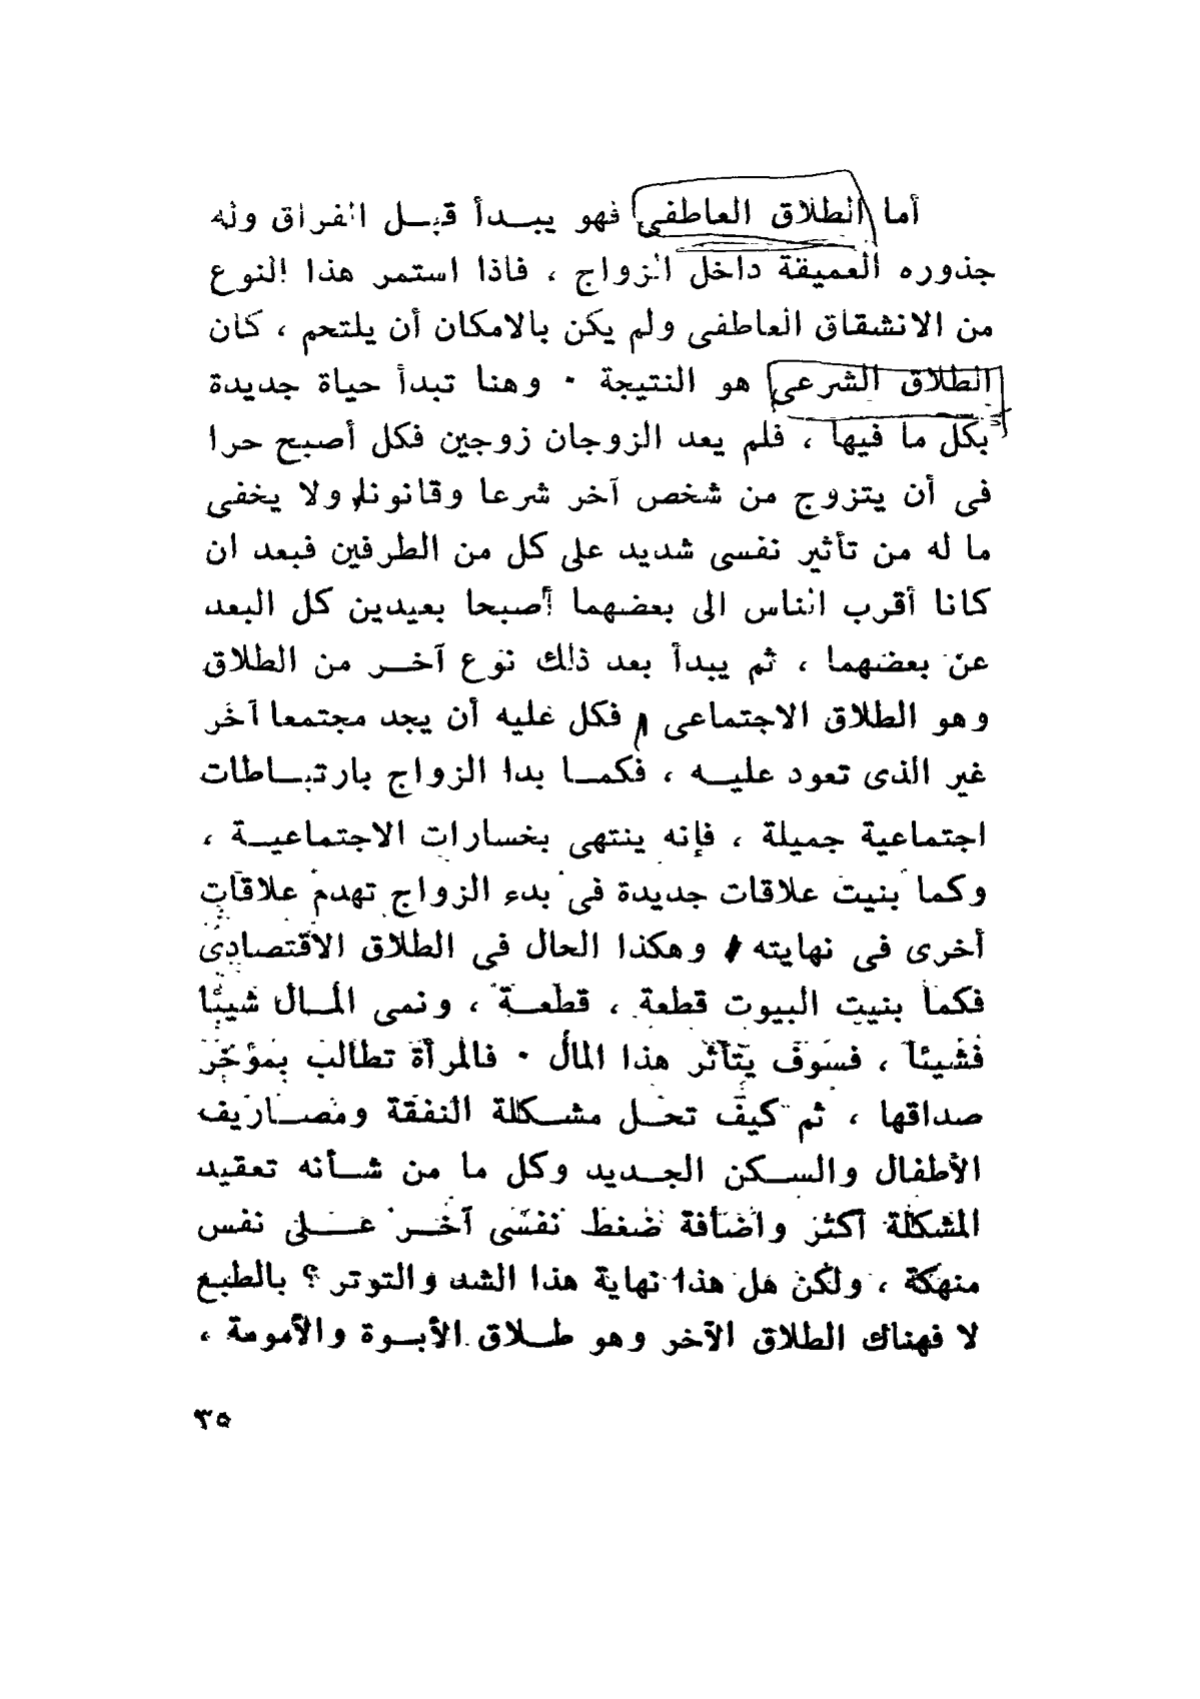 أما الطلاق العاطفى فهو يبــدأ قبــل الفراق وله
جذوره العميقة داخل الزواج ، فاذا استمر هذا النوع
من الانشقاق العاطفى ولم يكن بالامكان أن يلتحم ، كان
الطلاق الشرعى هو النتيجة ٠ وهنا تبدأ حياة جديدة
بكل ما فيها ، فلم يعد الزوجان زوجين فكل أصبح حرا
فى أن يتزوج من شخص آخر شرعا وقانونا، ولا يخفى
ما له من تأثير نفسى شديد على كل من الطرفين فبعد ان
كانا أقرب الناس الى بعضهما أصبحا بعيدين كل البعد
عن بعضهما ، ثم يبدأ بعد ذلك نوع آخــر من الطلاق
وهو الطلاق الاجتماعى ، فكل عليه أن يجد مجتمعا آخر
غير الذى تعود عليــه ، فكمــا بدا الزواج بارتبــاطات
اجتماعية جميلة ، فإنه ينتهى بخسارات الاجتماعيــة ،
وكما بنيت علاقات جديدة فى بدء الزواج تهدم علاقات
أخرى فى نهايته ، وهكذا الحال فى الطلاق الاقتصادى
فكما بنيت البيوت قطعة ، قطعــة ، ونمى المــال شيئا
فشيئا ، فسوف يتأثر هذا المال ٠ فالمرأة تطالب بمؤخر
صداقها ، ثم كيف تحــل مشــكلة النفقة ومصــاريف
الأطفال والســكن الجــديد وكل ما من شــأنه تعقيد
المشكلة أكثر واضافة ضغط نفسى آخــر عــلى نفس
منهكة ، ولكن هل هذا نهاية هذا الشد والتوتر ؟ بالطبع
لا فهناك الطلاق الآخر وهو طــلاق الأبــوة والأمومة ،
٣٥